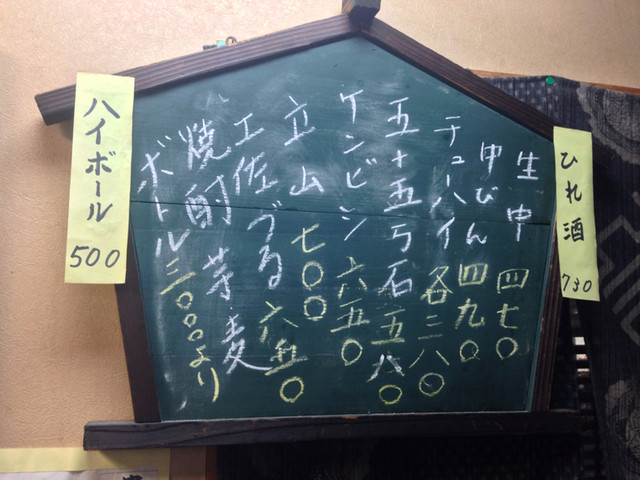 ひれ酒 730
生中 四七〇
中びん 四九〇
チューハイ 各三八〇
五十五万石 五八〇
ケンビシ 六五〇
立山 七〇〇
工佐づる 六五〇
焼酎 芋 麦
ボトル三〇〇〇より
ハイボール 500